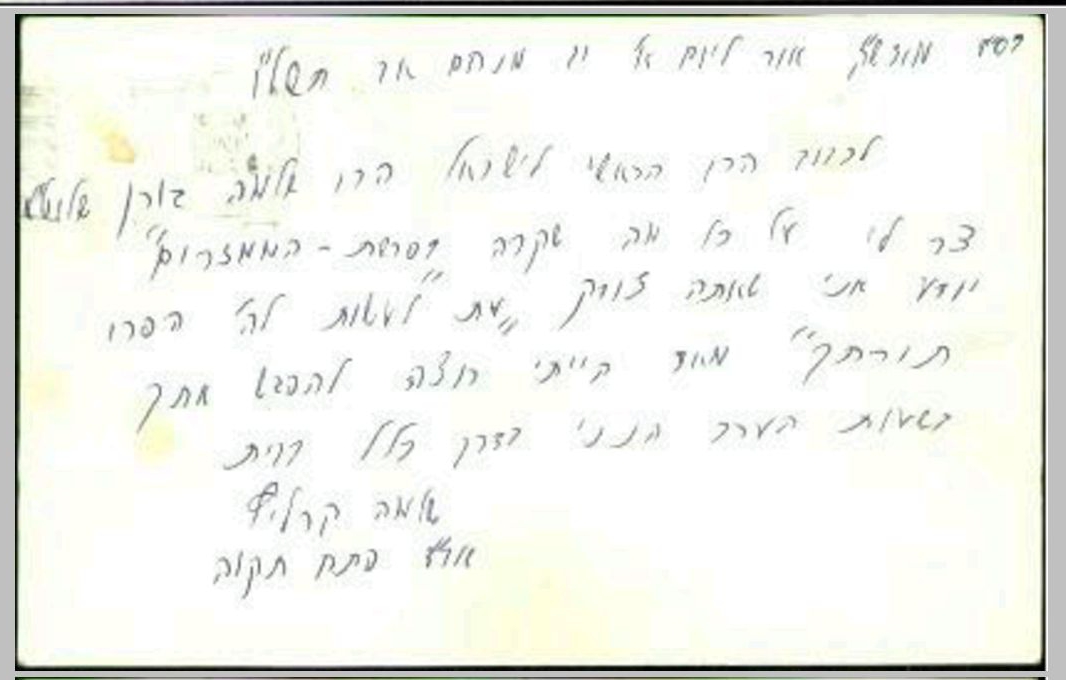 בס"ד מוצש"ק אור ליום א' יג מנחם אב תשל"ו
לכבוד הרב הראשי לישראל הרב שלמה גורן שליט"א
צר לי על כל מה שקרה בפרשת - הממזרים"
יודע אני שאתה צודק "עת לעשות לה' הפרו
תורתך" מאד הייתי רוצה להפגש אתך
בשעות הערב הנני בדרך כלל בבית
שלמה קרליץ
אור פתח תקוה